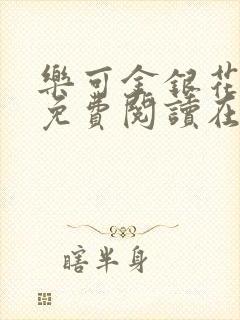 樂可金銀花
免費閱讀在
瞎半身